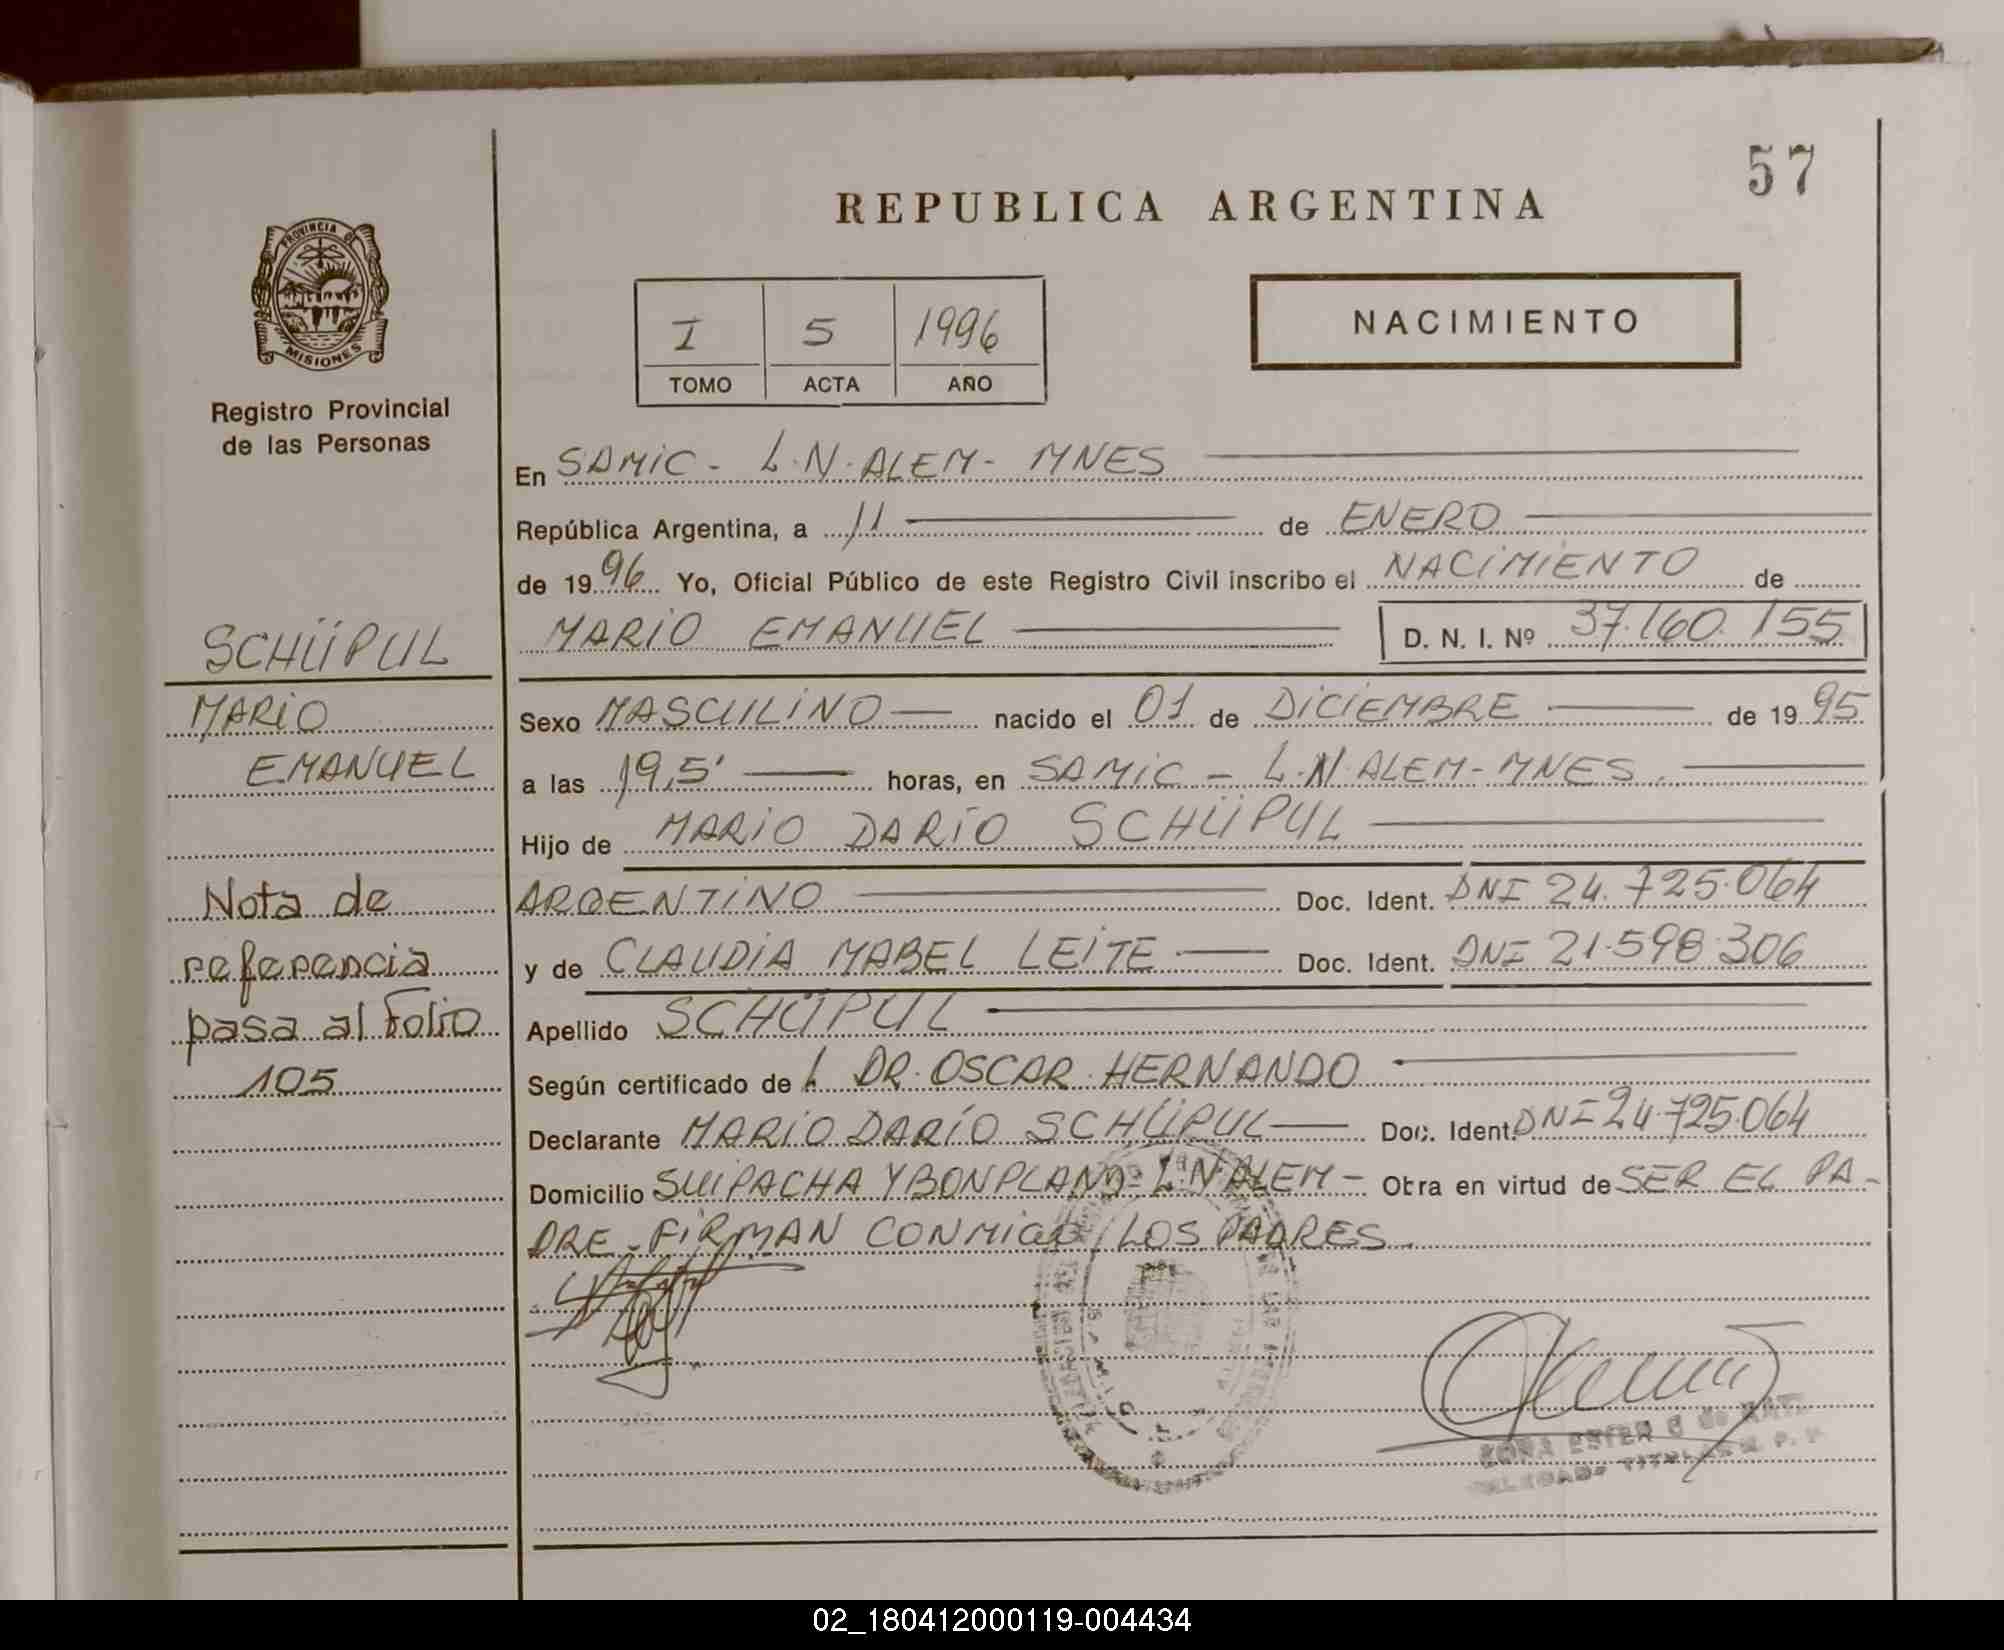 57
REPUBLICA ARGENTINA
PROVINCIA DE
MISIONES
Registro Provincial
de las Personas
I 5 1996
TOMO ACTA AÑO
NACIMIENTO
En SAMIC - L.N. ALEM - MNES
República Argentina, a 11 de ENERO
de 1996 Yo, Oficial Público de este Registro Civil inscribo el NACIMIENTO de
MARIO EMANUEL D. N. I. Nº 37.160.155
SCHÜPUL
MARIO
EMANUEL
Sexo MASCULINO nacido el 01 de DICIEMBRE de 1995
a las 19,5' horas, en SAMIC - L.N. ALEM - MNES.
Hijo de MARIO DARÍO SCHÜPUL
ARGENTINO Doc. Ident. DNI 24.725.064
y de CLAUDIA MABEL LEITE Doc. Ident. DNI 21.598.306
Apellido SCHÜPUL
Según certificado de L DR. OSCAR HERNANDO
Declarante MARIO DARÍO SCHÜPUL Doc. Ident. DNI 24.725.064
Domicilio SUIPACHA Y BONPLAND - L.N. ALEM - Obra en virtud de SER EL PA-
DRE - FIRMAN CONMIGO LOS PADRES.
Nota de
referencia
pasa al Folio
105
02_180412000119-004434